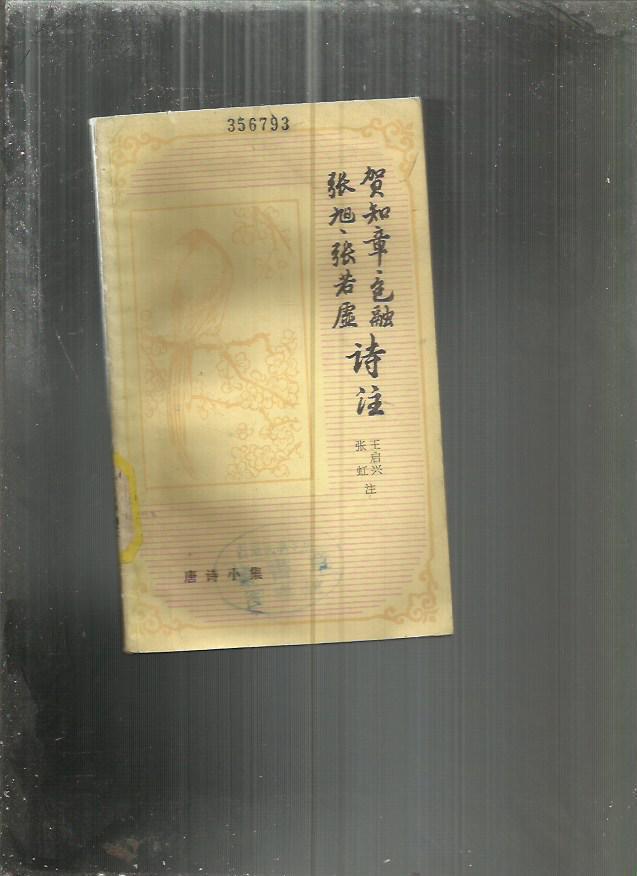 356793
贺知章、包融
张旭、张若虚
诗注
王启兴
张虹
注
唐诗小集